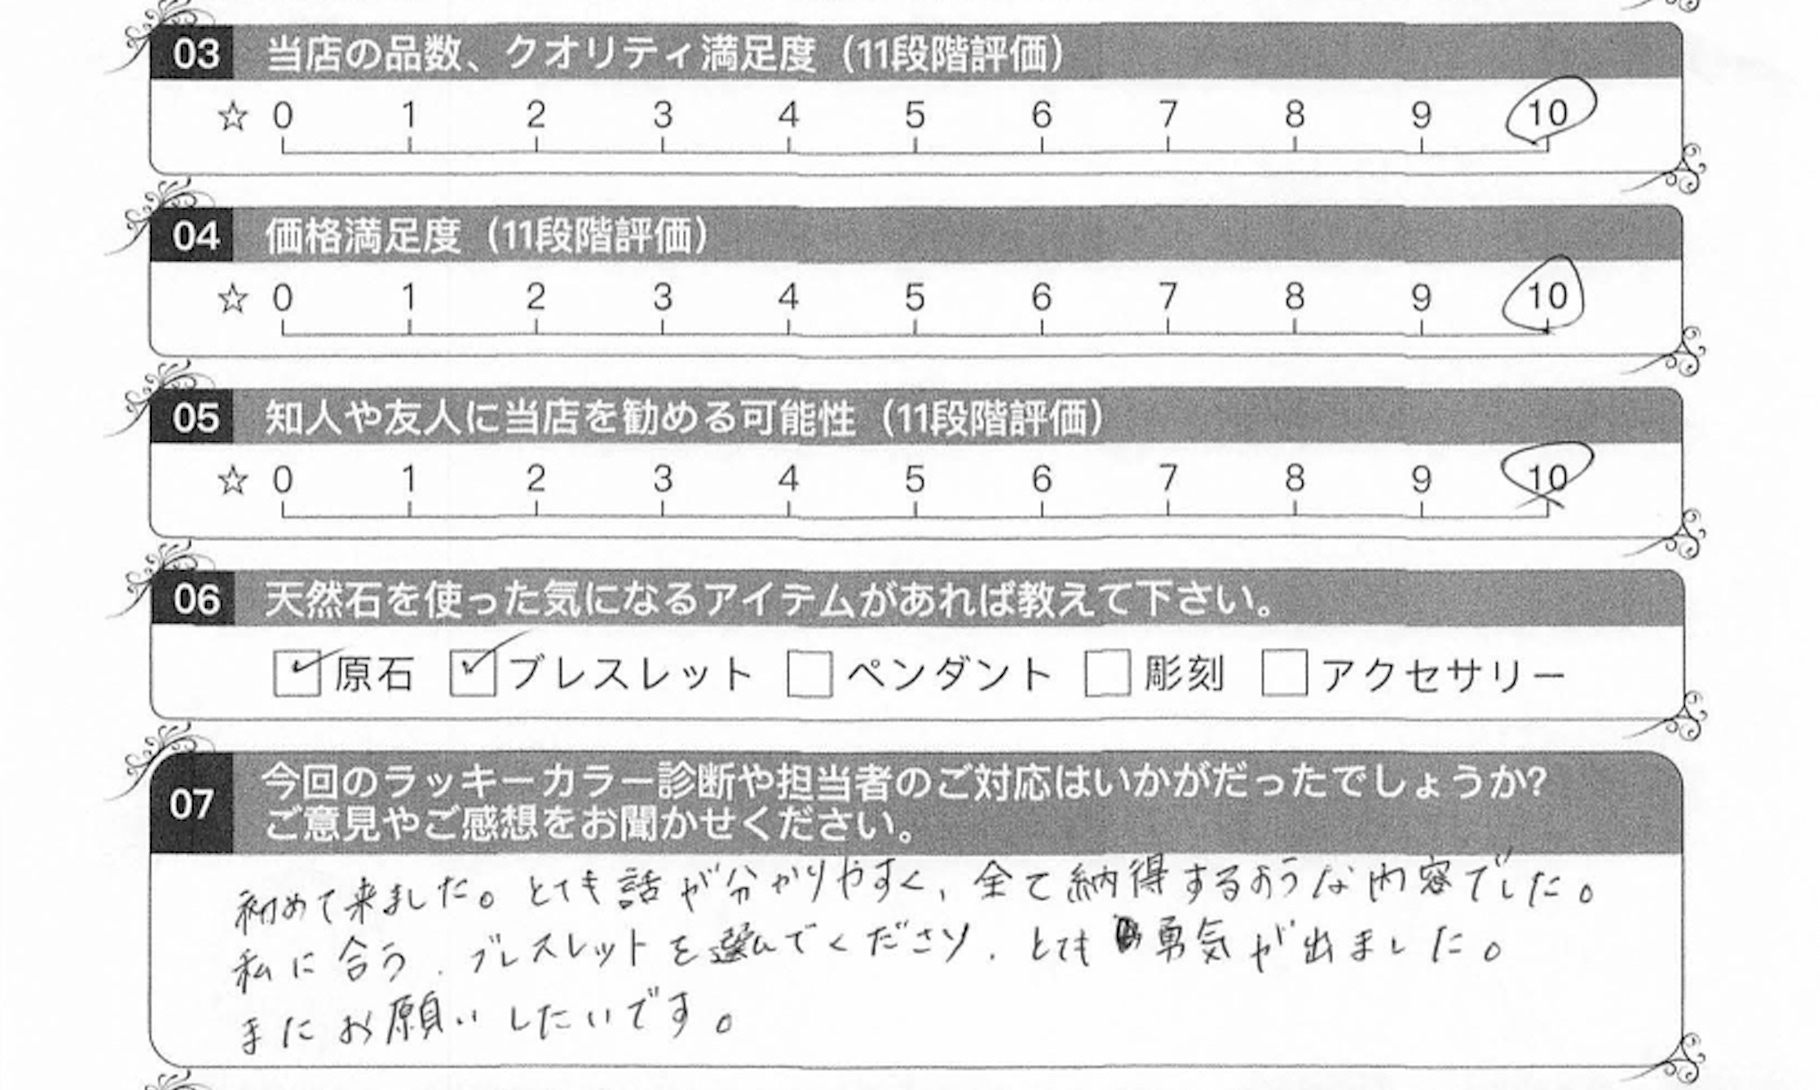 03 当店の品数、クオリティ満足度（11段階評価）
☆ 0 1 2 3 4 5 6 7 8 9 10
04 価格満足度（11段階評価）
☆ 0 1 2 3 4 5 6 7 8 9 10
05 知人や友人に当店を勧める可能性（11段階評価）
☆ 0 1 2 3 4 5 6 7 8 9 10
06 天然石を使った気になるアイテムがあれば教えて下さい。
☑原石 ☑ブレスレット □ペンダント □彫刻 □アクセサリー
07 今回のラッキーカラー診断や担当者のご対応はいかがだったでしょうか?
ご意見やご感想をお聞かせください。
初めて来ました。とても話が分かりやすく、全て納得するような内容でした。
私に合う、ブレスレットを選んでくださり、とても勇気が出ました。
またお願いしたいです。